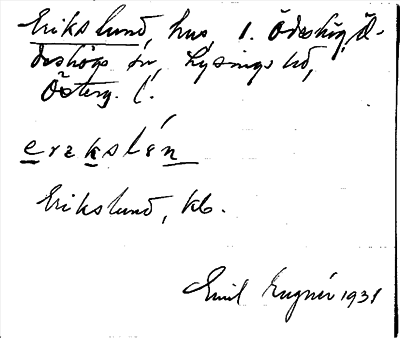 Erikslund, hus, 1. Ödeshög, Ö-
deshögs sn, Lysings hd,
Österg. l.
erekslén
Erikslund, kb.
Emil Engnér 1931